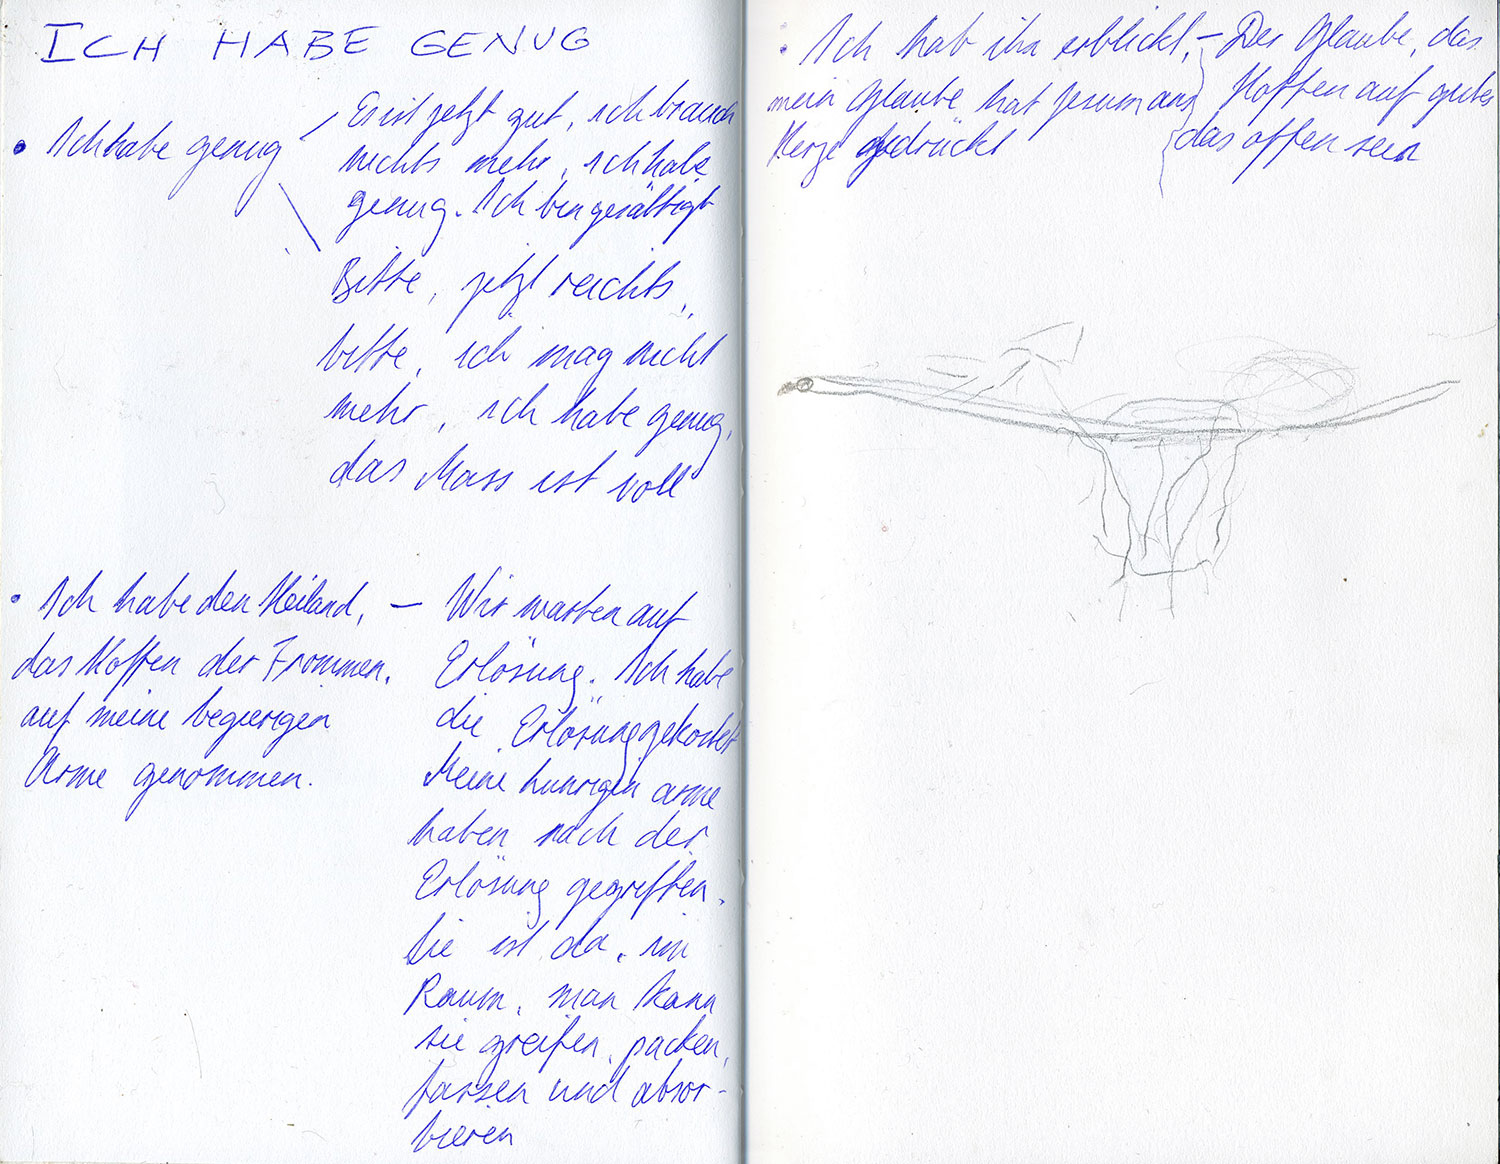 ICH HABE GENUG
• Ich habe genug
Es ist jetzt gut, ich brauch
nichts mehr, ich habe
genug. Ich bin gesättigt
Bitte, jetzt reichts,
bitte, ich mag nicht
mehr, ich habe genug,
das Mass ist voll
• Ich habe den Heiland,
das Hoffen der Frommen,
auf meine begierigen
Arme genommen.
– Wir warten auf
Erlösung. Ich habe
die Erlösung gekostet
Meine hunrigen arme
haben nach der
Erlösung gegriffen.
Sie ist da, im
Raum, man kann
sie greifen, packen,
fassen und absor-
bieren
• Ich hab ihn erblickt,
mein Glaube hat Jesum ans
Herze gedrückt
– Der Glaube, das
Hoffen auf gutes
das offen sein